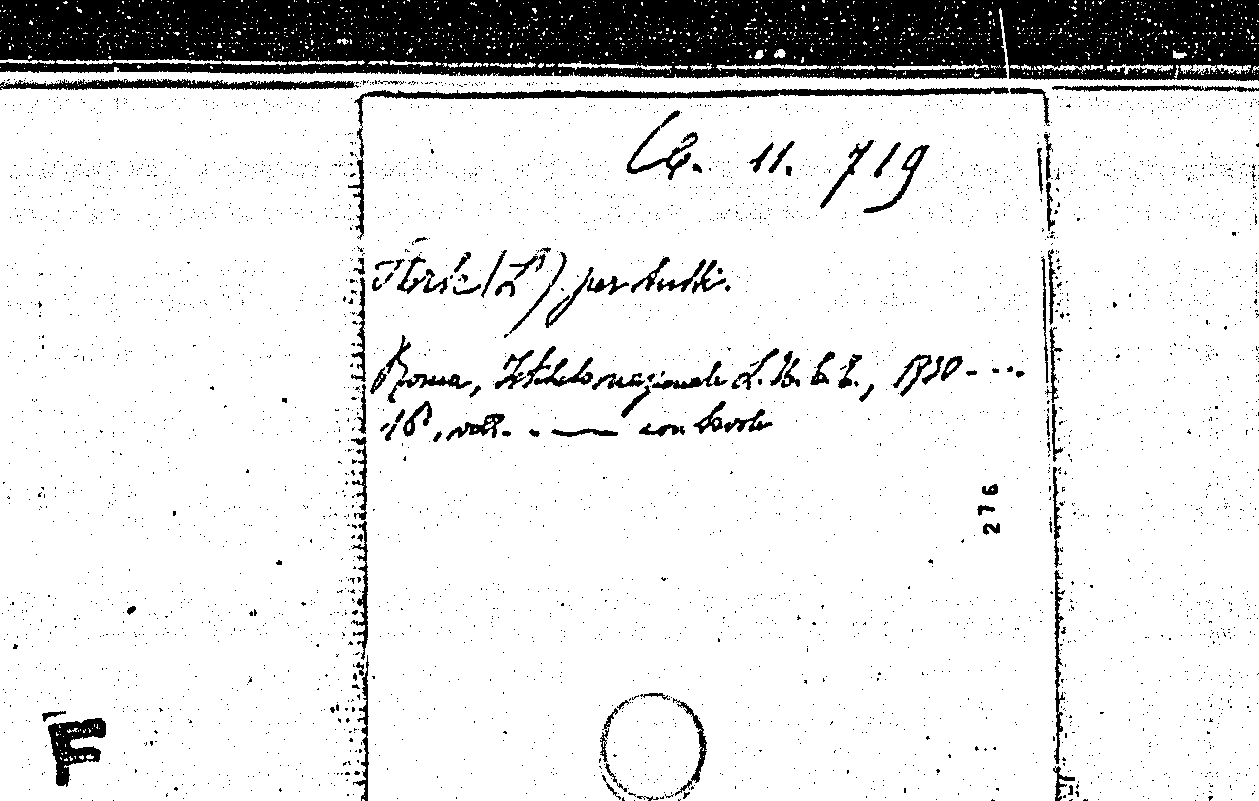 11. 719
(L') per tutti.
Roma, Istituto nazionale L.U.C.E., 1930 - ...
16°, voll. - —— con tavole
276
F